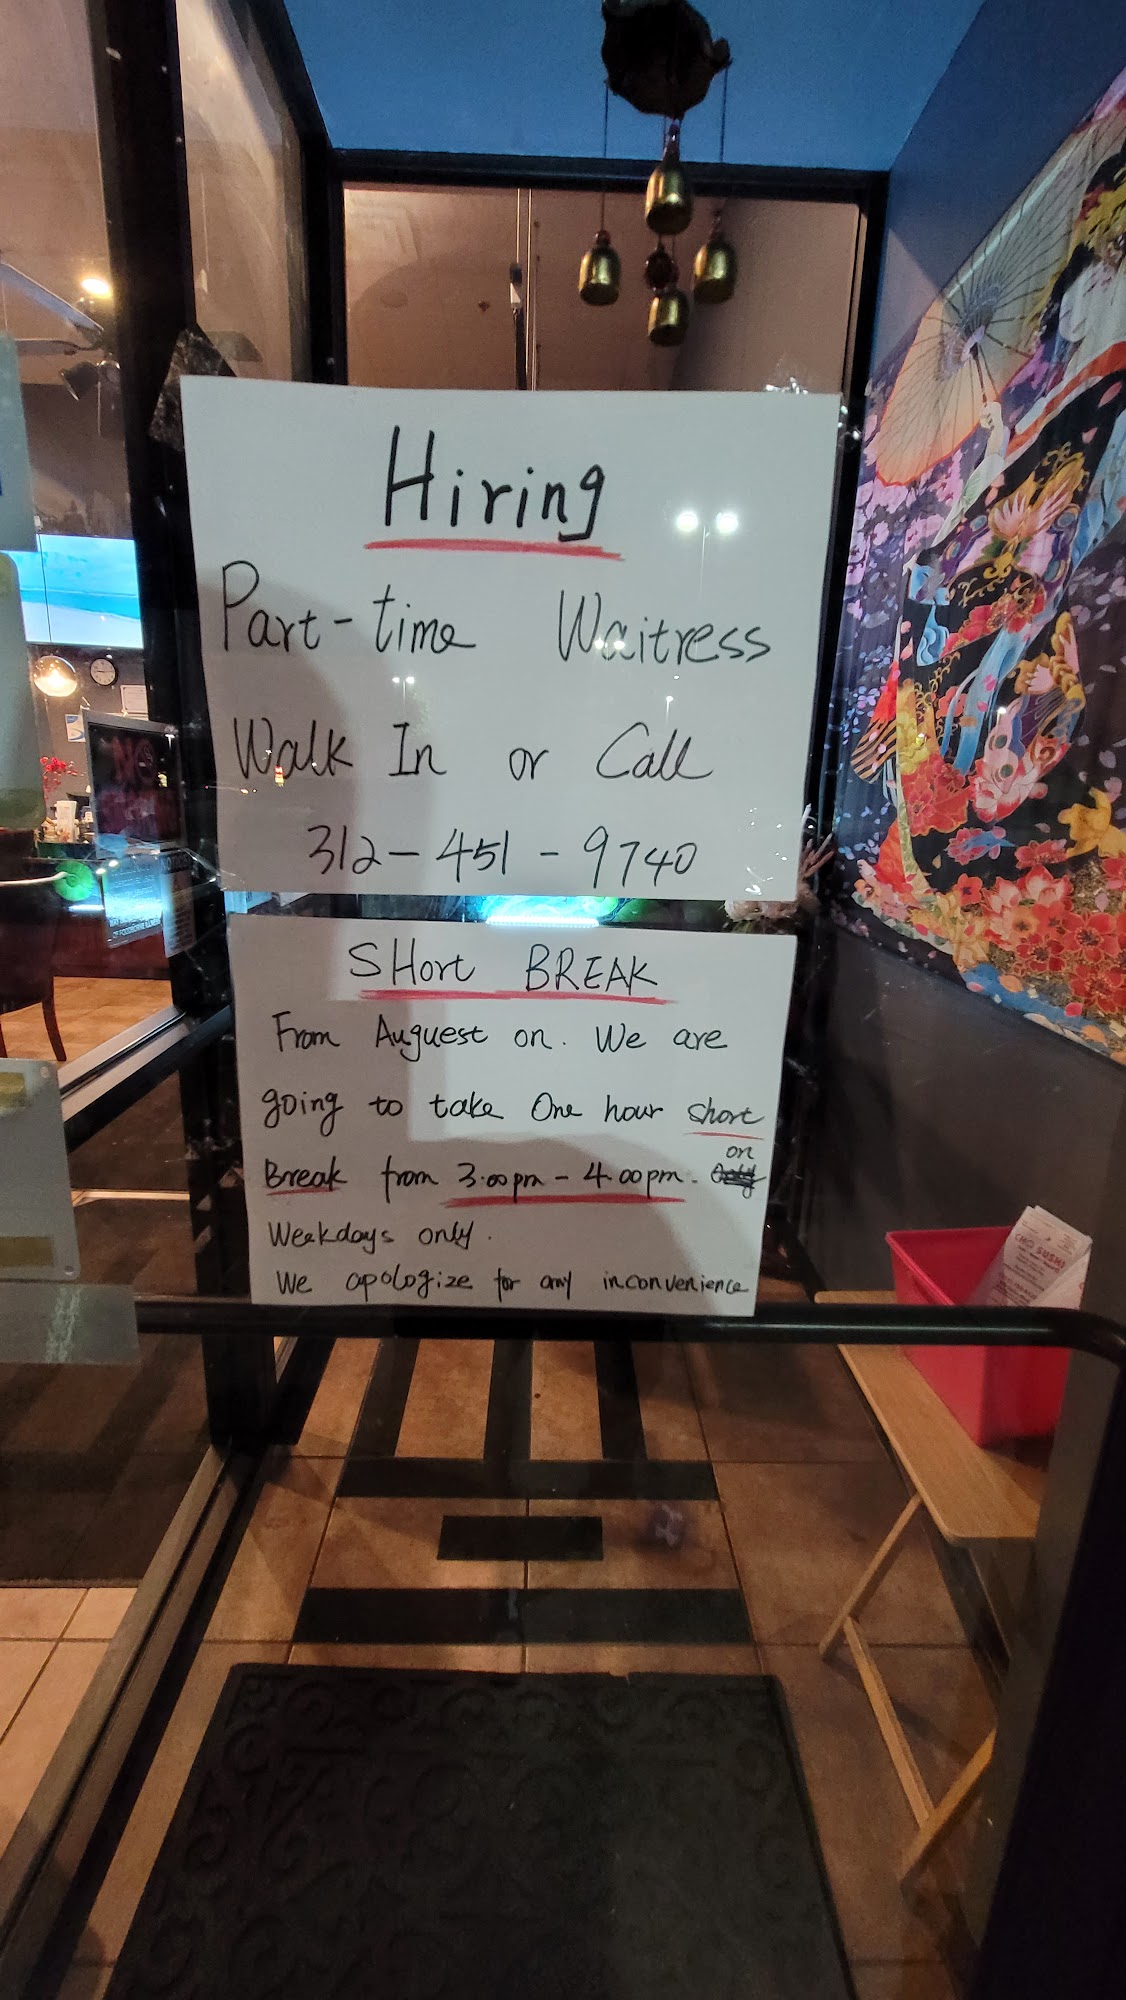 Hiring
Part-time Waitress
Walk In or Call
312-451-9740
SHort BREAK
From Auguest on. We are
going to take One hour short
Break from 3.00pm - 4.00pm. on
Weekdays only.
We apologize for any inconvenience
SUSHI